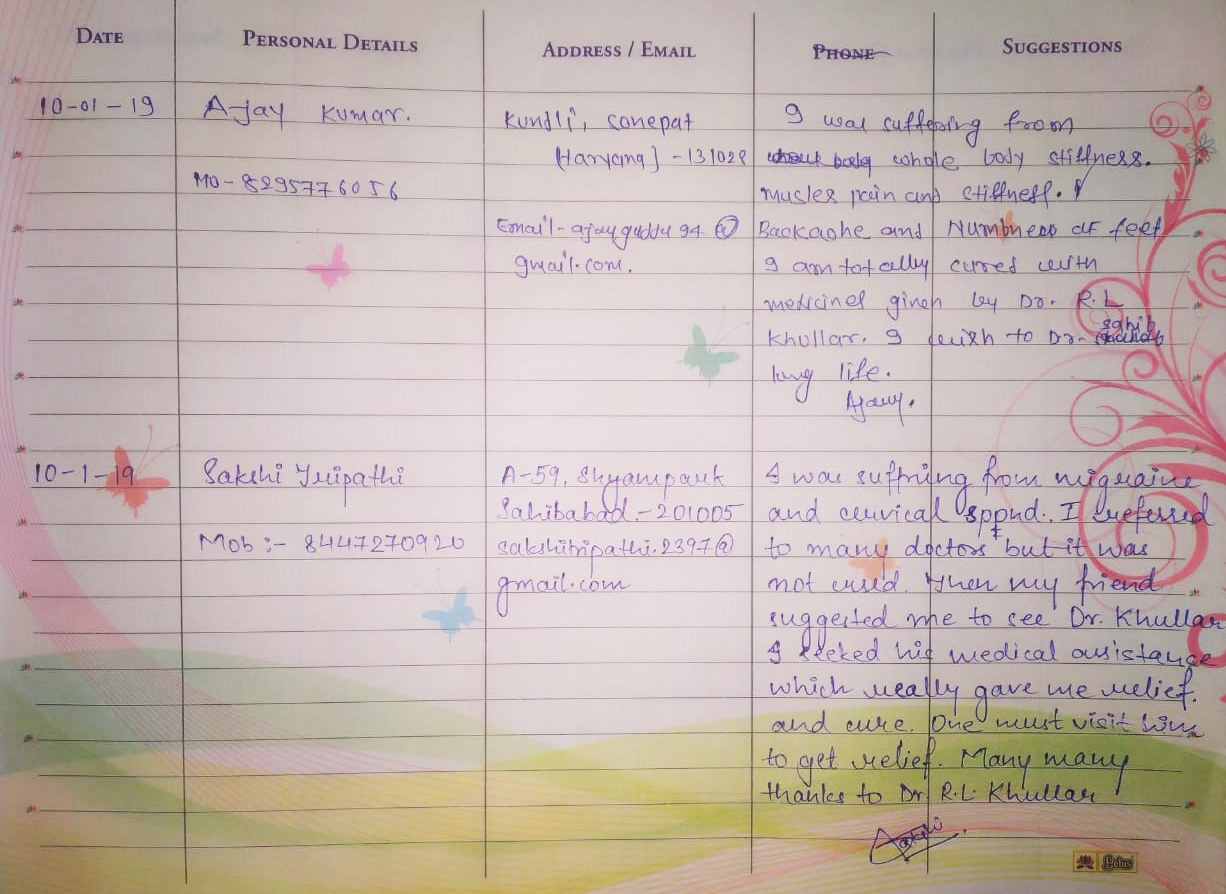 DATE
PERSONAL DETAILS
ADDRESS / EMAIL
PHONE
SUGGESTIONS
10-01-19
Ajay Kumar.
Mo-8295776056
Kundli, Sonepat
(Haryana] - 131028
Email - ajayguddu94@
gmail.com.
I was suffering from
whole body stiffness.
musles pain and stiffness.
Backache and Numbness of feet
I am totally cured with
medicines given by Dr. R.L
Khullar. I wish to Dr. sahib
long life.
Ajay.
10-1-19
Sakshi Tripathi
Mob :- 8447270920
A-59, Shyampark
Sahibabad.-201005
sakshitripathi.2397@
gmail.com
I was suffring from migraine
and cervical sppnd. I referred
to many doctors but it was
not cured. Then my friend
suggested me to see Dr. Khullar
I seeked his medical assistance
which really gave me relief.
and cure. One must visit him
to get relief. Many many
thanks to Dr. R.L. Khullar
Sakshi